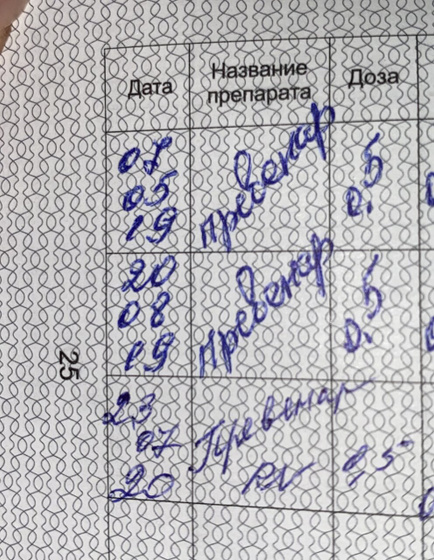 Дата Название препарата Доза
07 05 19 превенар 0.5
20 08 19 превенар 0.5
23 07 20 Превенар RV 0,5
25